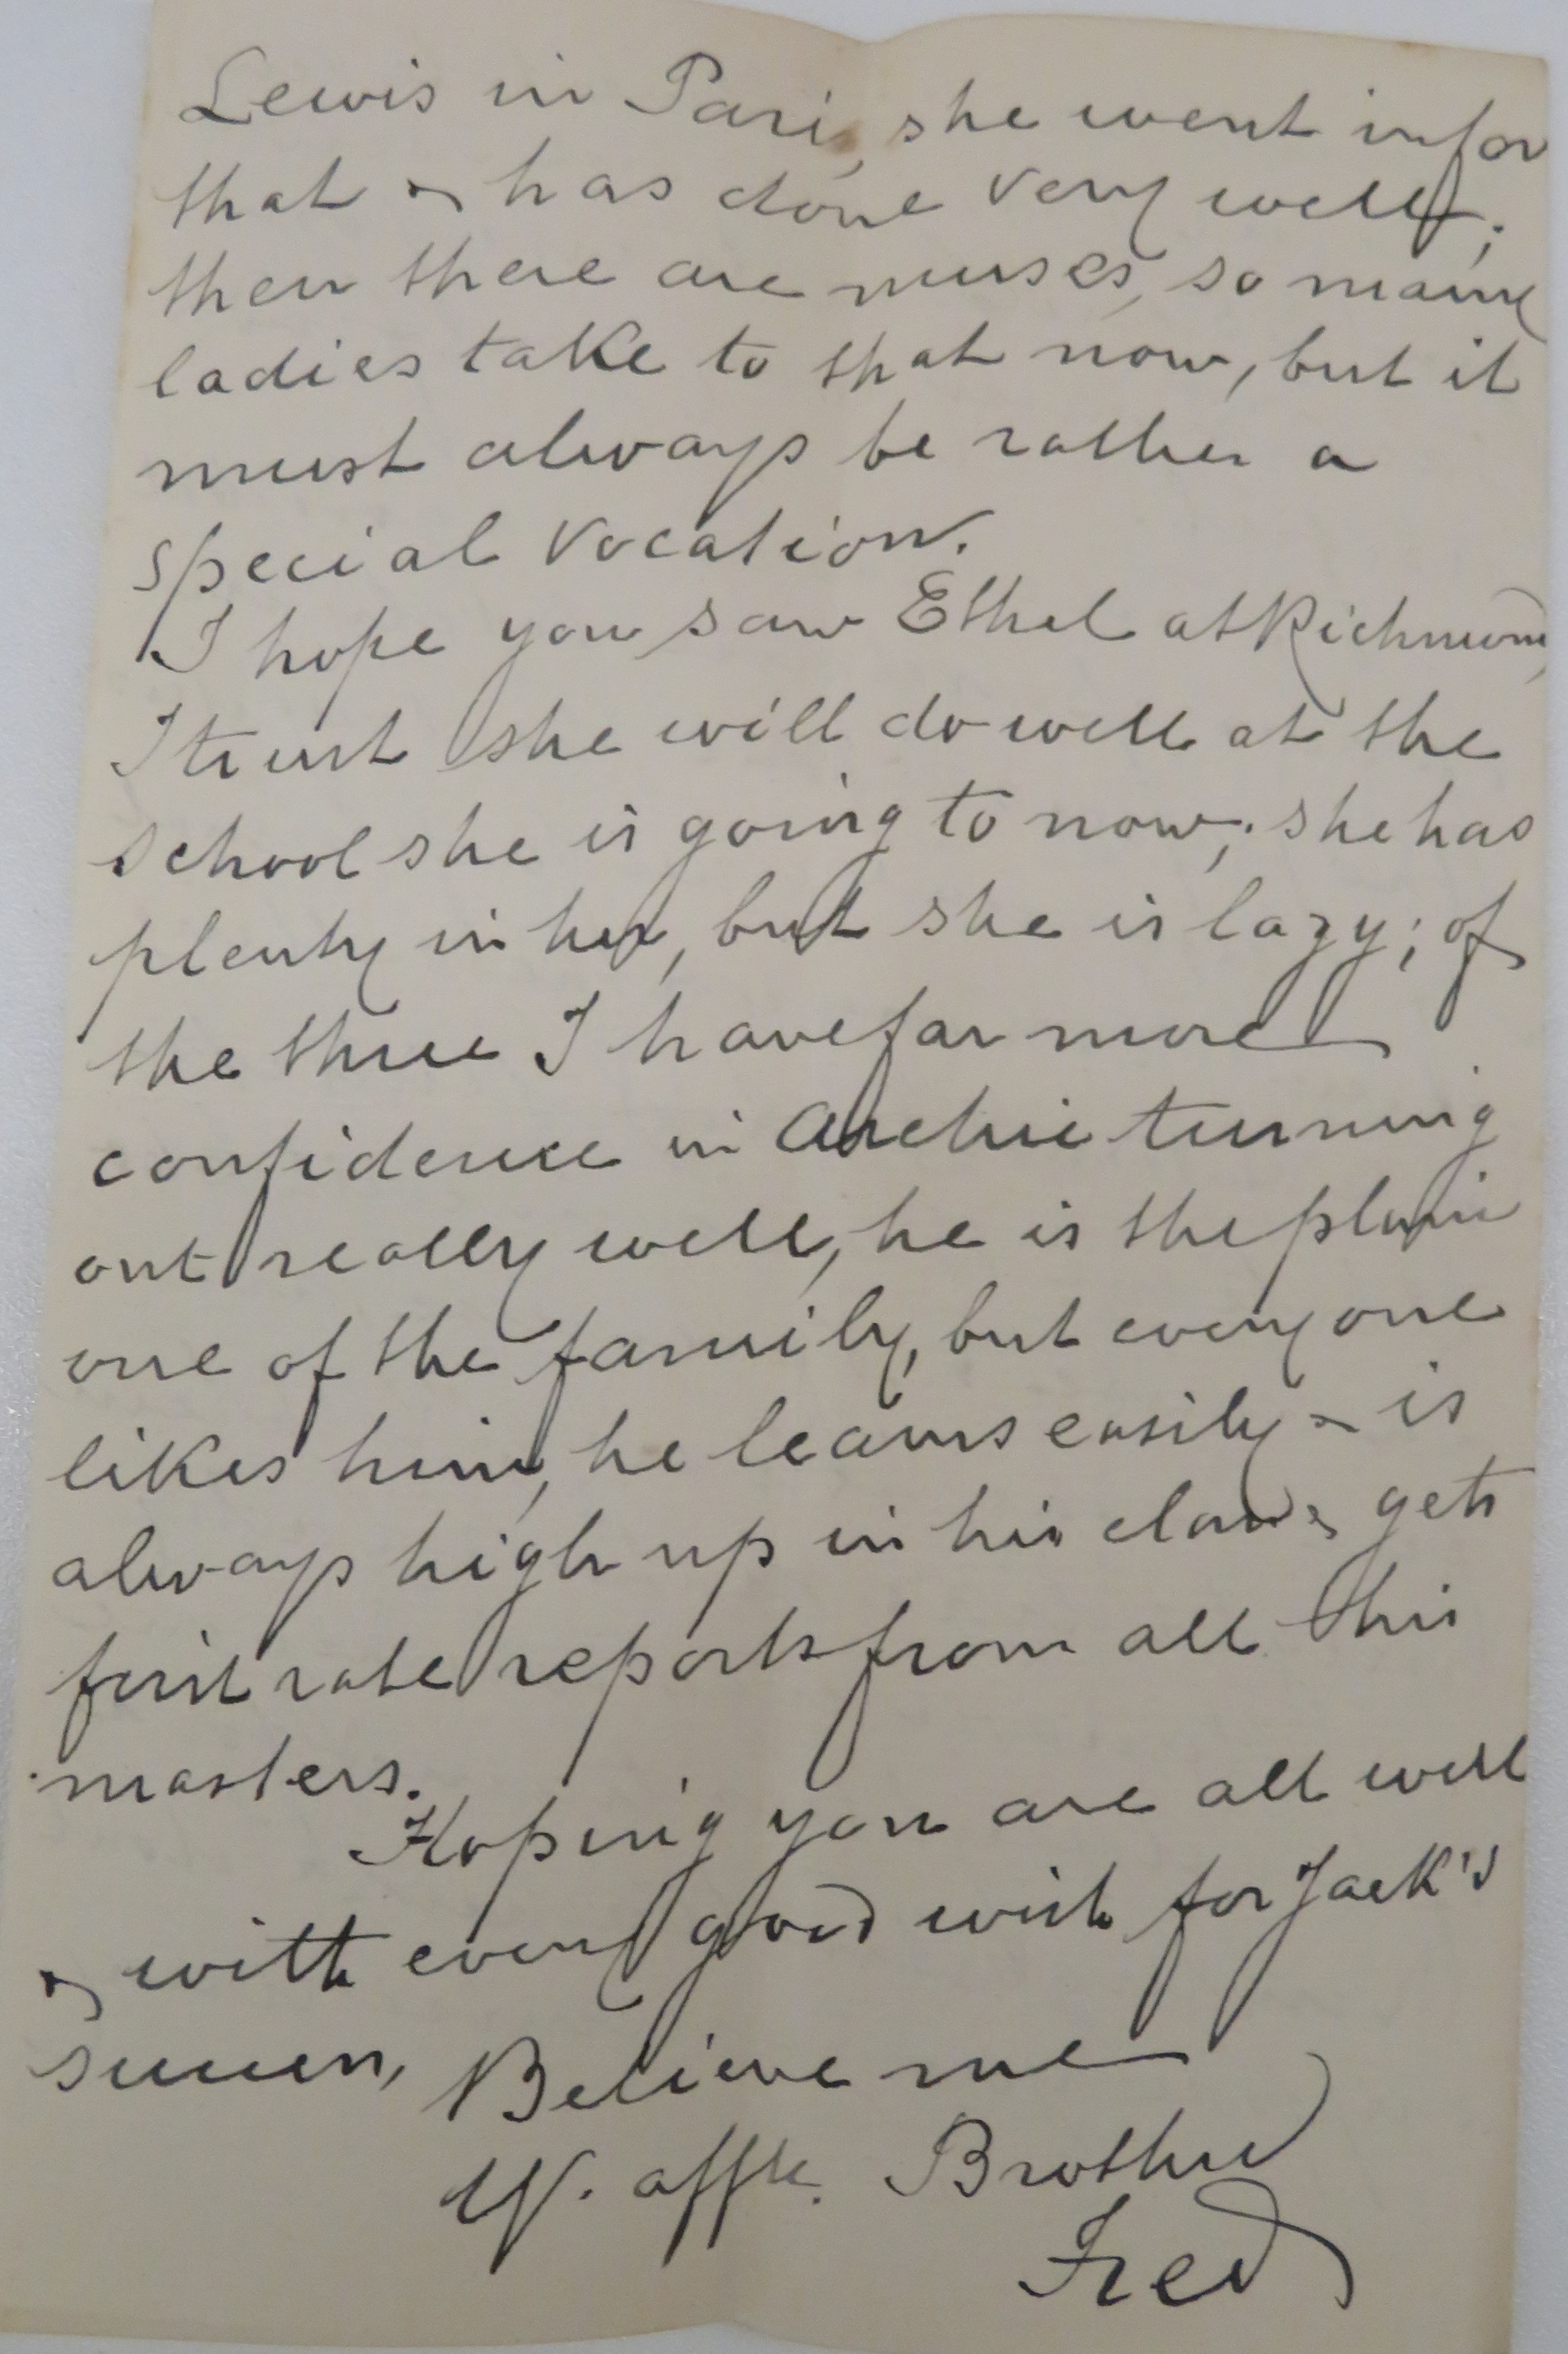 Lewis in Paris, she went in for
that & has done very well;
then there are nurses, so many
ladies take to that now, but it
must always be rather a
special vocation.
I hope you saw Ethel at Richmond,
I trust she will do well at the
school she is going to now; she has
plenty in her, but she is lazy; of
the three I have far more
confidence in Archie turning
out really well, he is the plain
one of the family, but every one
likes him, he learns easily & is
always high up in his class & gets
first rate reports from all his
masters.
Hoping you are all well
& with every good wish for Jack's
success, Believe me
Yr. affte. Brother
Fred